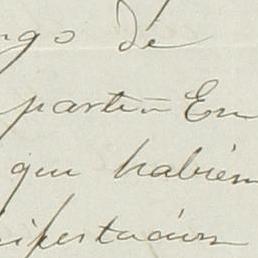 ngo de
partin En
que habien
nifestacion